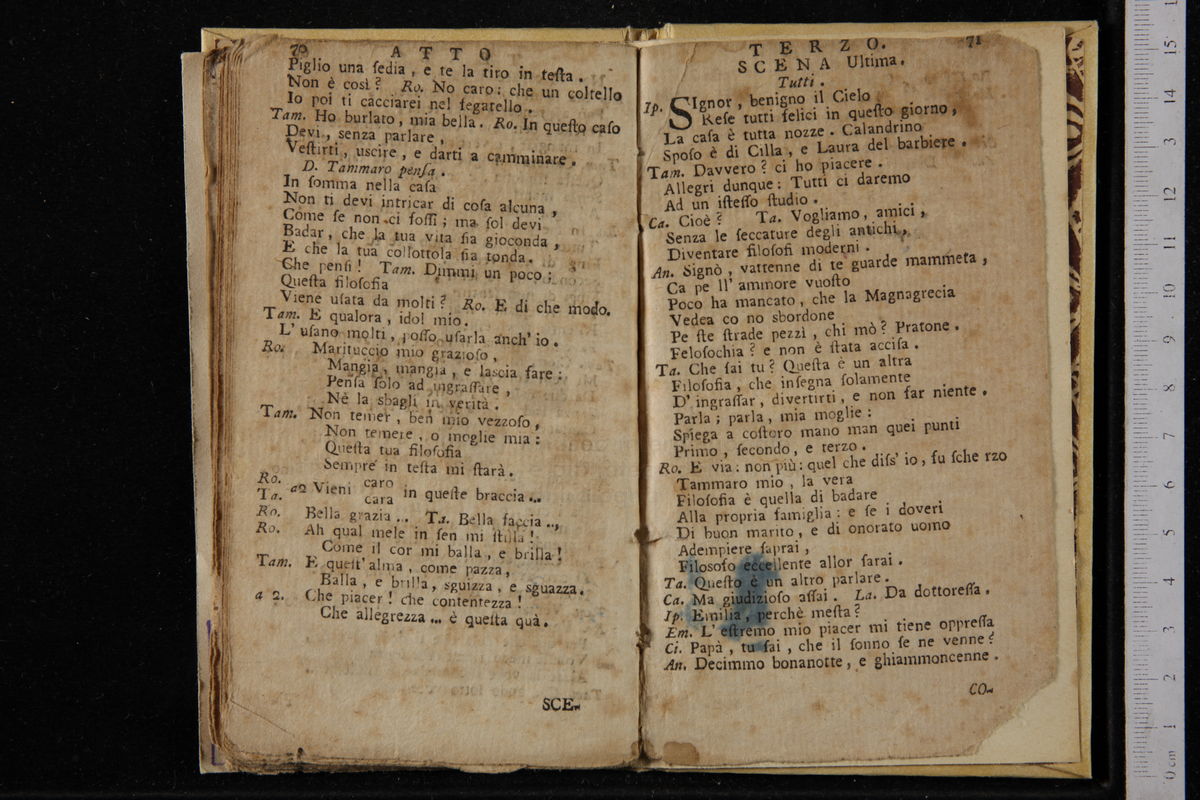 70 ATTO
Piglio una ſedia, e te la tiro in teſta.
Non è così? Ro. No caro: che un coltello
Io poi ti cacciarei nel fegatello.
Tam. Ho burlato, mia bella. Ro. In queſto caſo
Devi, senza parlare,
Veſtirti, uscire, e darti a camminare.
D. Tammaro penſa.
In ſomma nella caſa
Non ti devi intricar di coſa alcuna,
Come ſe non ci foſſi; ma ſol devi
Badar, che la tua vita ſia gioconda,
E che la tua collottola ſia tonda.
Che penſi! Tam. Dimmi un poco:
Queſta filoſofia
Viene uſata da molti? Ro. E di che modo.
Tam. E qualora, idol mio.
L' uſano molti, poſſo uſarla anch' io.
Ro. Marituccio mio grazioſo,
Mangia, mangia, e laſcia fare:
Penſa ſolo ad ingraſſare,
Nè la sbagli in verità.
Tam. Non temer, ben mio vezzoſo,
Non temere, o moglie mia:
Queſta tua filoſofia
Sempre in teſta mi ſtarà.
Ro. caro
Ta. a2 Vieni cara in queſte braccia...
Ro. Bella grazia... Ta. Bella faccia...,
Ro. Ah qual mele in ſen mi ſtilla!
Come il cor mi balla, e brilla!
Tam. E queſt' alma, come pazza,
Balla, e brilla, sguizza, e sguazza.
a 2. Che piacer! che contentezza!
Che allegrezza... è queſta quà.
SCE-
TERZO. 71
SCENA Ultima.
Tutti.
Ip. SIgnor, benigno il Cielo
Reſe tutti felici in queſto giorno,
La caſa è tutta nozze. Calandrino
Spoſo è di Cilla, e Laura del barbiere.
Tam. Davvero? ci ho piacere.
Allegri dunque: Tutti ci daremo
Ad un iſteſſo ſtudio.
Ca. Cioè? Ta. Vogliamo, amici,
Senza le ſeccature degli antichi,
Diventare filoſofi moderni.
An. Signò, vattenne di te guarde mammeta,
Ca pe ll' ammore vuoſto
Poco ha mancato, che la Magnagrecia
Vedea co no sbordone
Pe ſte ſtrade pezzì, chi mò? Pratone.
Feloſochia? e non è ſtata acciſa.
Ta. Che ſai tu? Queſta è un altra
Filoſofia, che inſegna ſolamente
D' ingraſſar, divertirti, e non far niente.
Parla; parla, mia moglie:
Spiega a coſtoro mano man quei punti
Primo, ſecondo, e terzo.
Ro. E via: non più: quel che diſs' io, fu ſche rzo
Tammaro mio, la vera
Filoſofia è quella di badare
Alla propria famiglia: e ſe i doveri
Di buon marito, e di onorato uomo
Adempiere ſaprai,
Filoſofo eccellente allor ſarai.
Ta. Queſto è un altro parlare.
Ca. Ma giudizioſo aſſai. La. Da dottoreſſa.
Ip. Emilia, perchè meſta?
Em. L' eſtremo mio piacer mi tiene oppreſſa
Ci. Papà, tu ſai, che il ſonno ſe ne venne?
An. Decimmo bonanotte, e ghiammoncenne.
CO-
0 cm 1 2 3 4 5 6 7 8 9 10 11 12 13 14 15